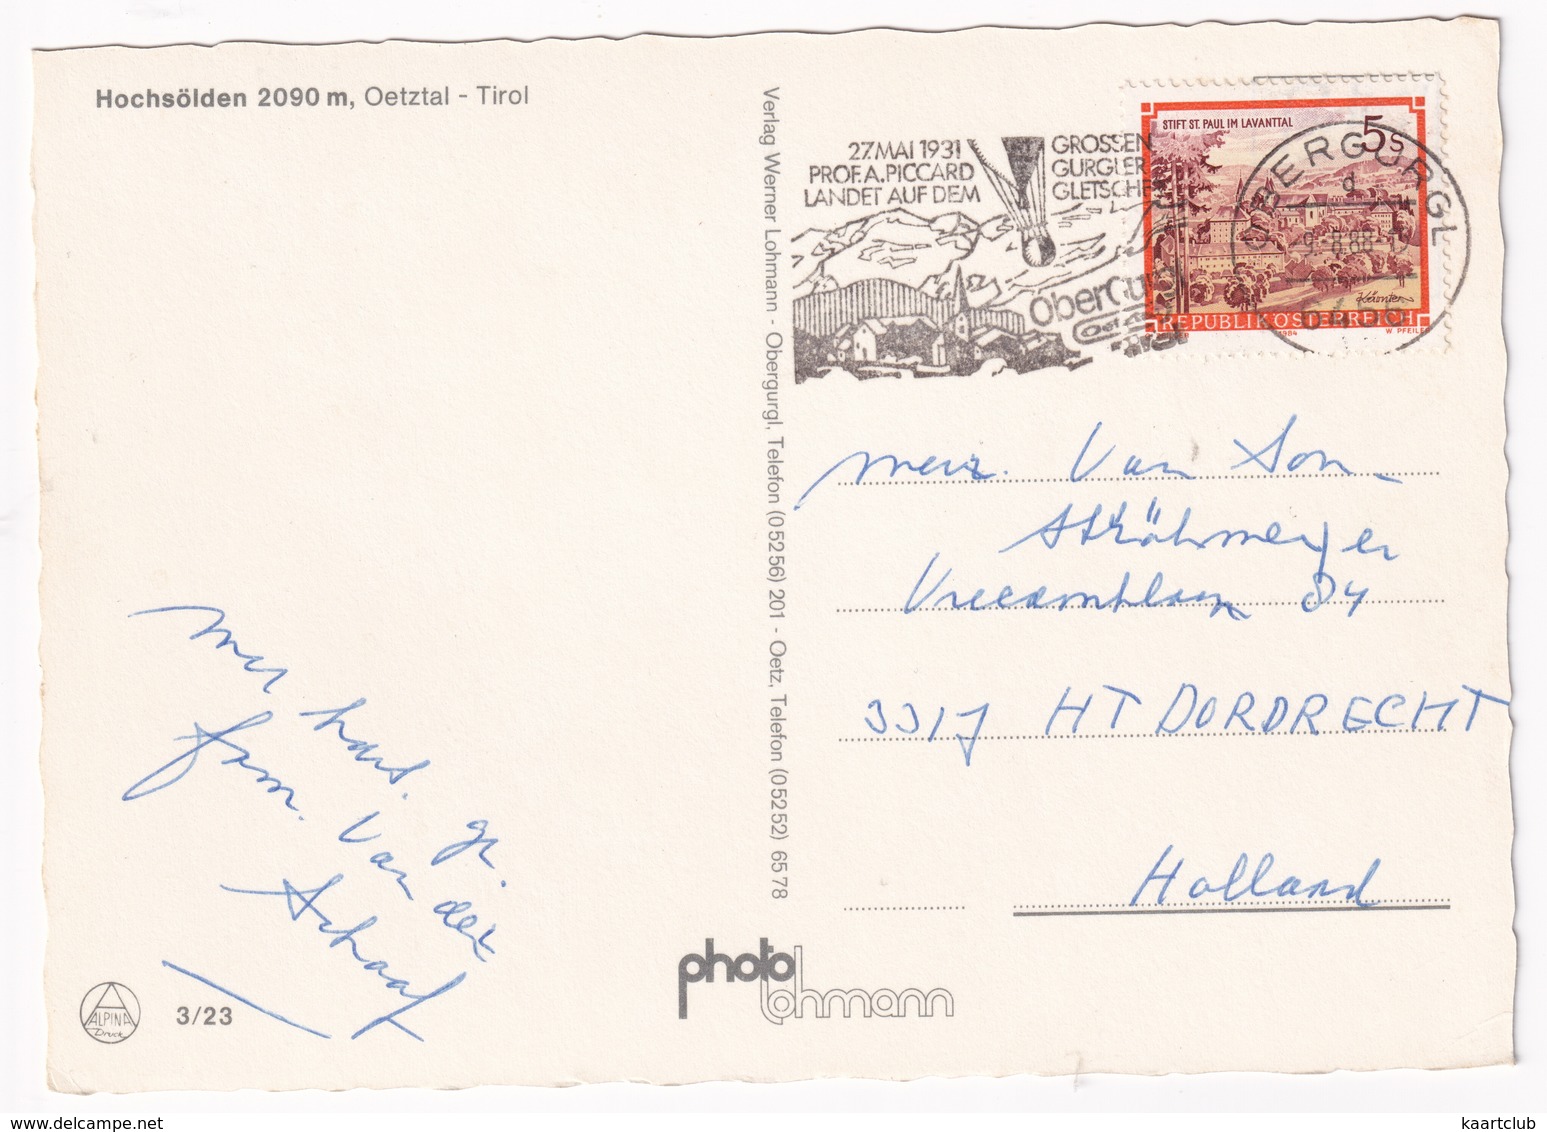 Hochsölden 2090 m, Oetztal - Tirol
Verlag Werner Lohmann - Obergurgl, Telefon (05256) 201 - Oetz, Telefon (05252) 6578
27.MAI 1931
PROF. A. PICCARD
LANDET AUF DEM
GROSSEN
GURGLER
GLETSCHER
OberGurgl
STIFT ST. PAUL IM LAVANTTAL
5 S
Kärnten
REPUBLIK ÖSTERREICH
1984
W. PFEILER
OBERGURGL
d
6456
Van Son
3317 HT DORDRECHT
Holland
met hart. gr.
fam. Van der
Schaaf
ALPINA
Druck
3/23
photo
lohmann
kaartclub
www.delcampe.net